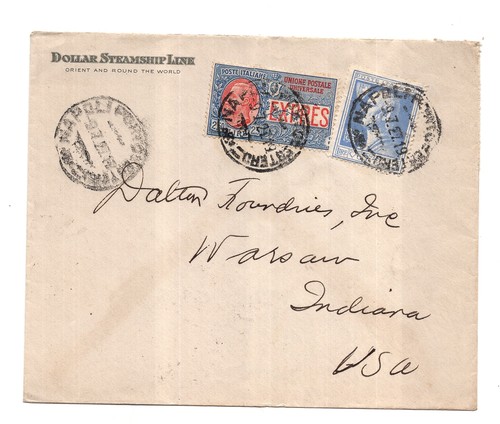 DOLLAR STEAMSHIP LINE
ORIENT AND ROUND THE WORLD
POSTE ITALIANE
UNIONE POSTALE
UNIVERSALE
EXPRES
NAPOLI
NAPOLI
NAPOLI
Dalton Foundries, Inc
Warsaw
Indiana
USA